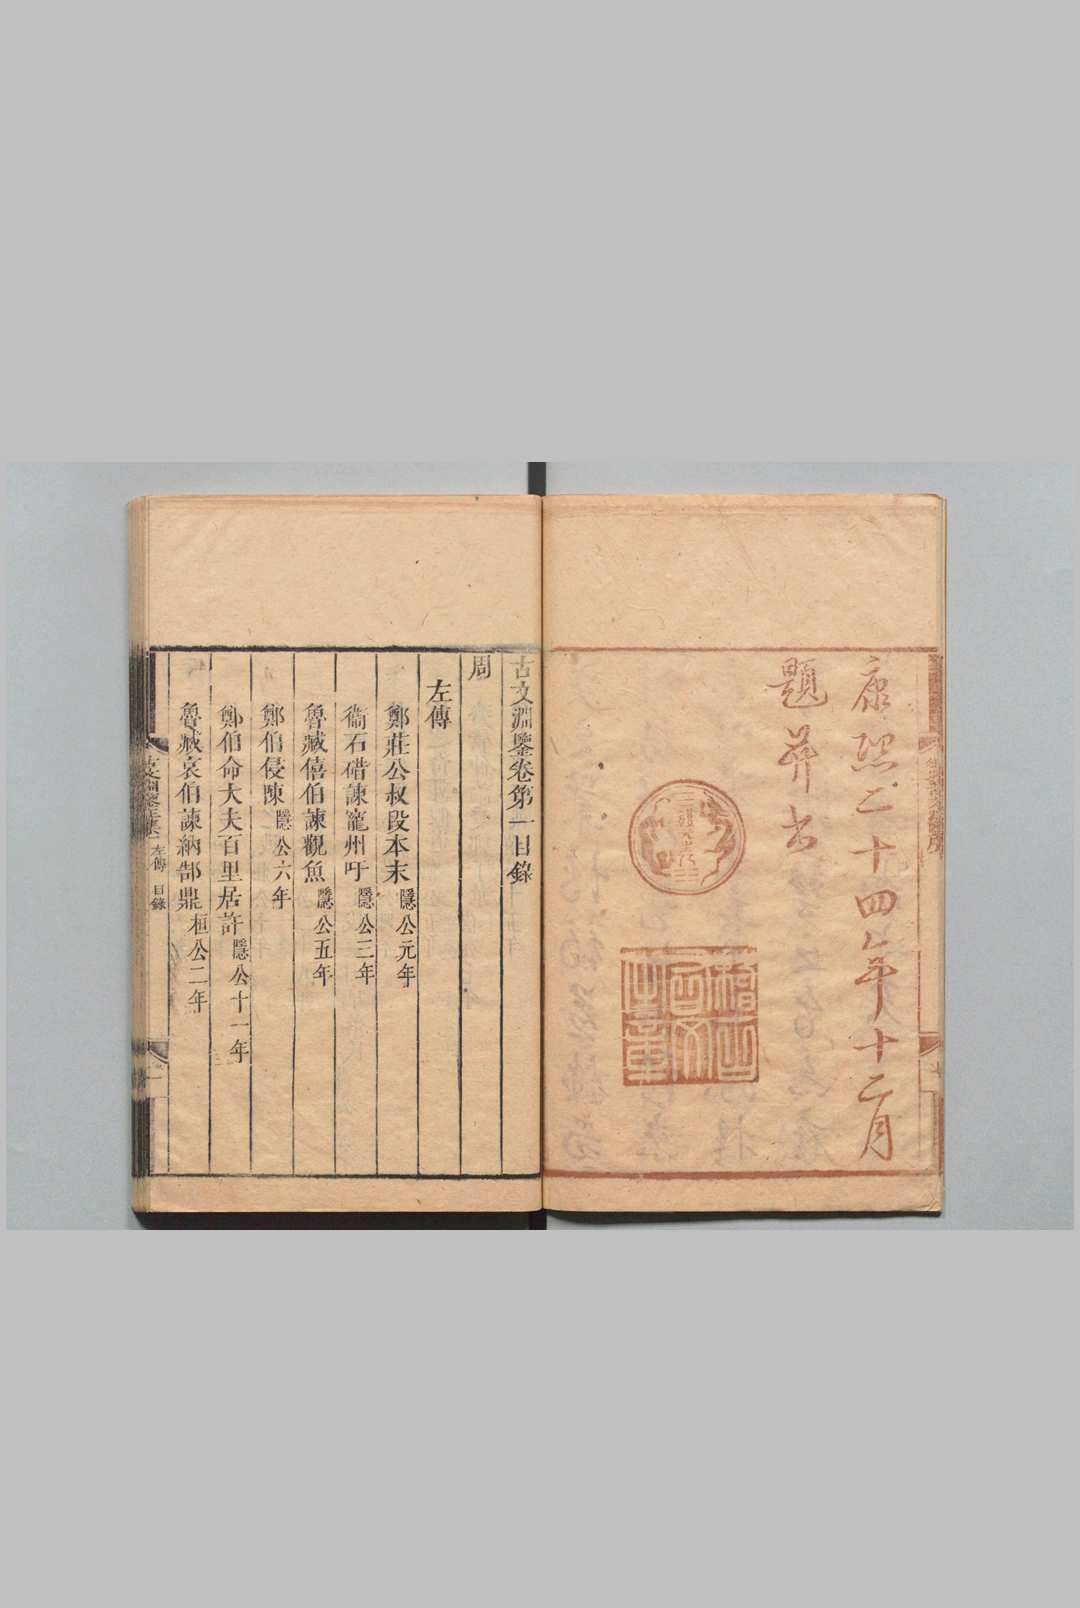 康熙二十四年十二月
題并書
稽古右文之章
古文淵鑒卷第一目錄
周
左傳
鄭莊公叔段本末 隱公元年
衞石碏諫寵州吁 隱公三年
魯臧僖伯諫觀魚 隱公五年
鄭伯侵陳 隱公六年
鄭伯命大夫百里居許 隱公十一年
魯臧哀伯諫納郜鼎 桓公二年
左傳 目錄